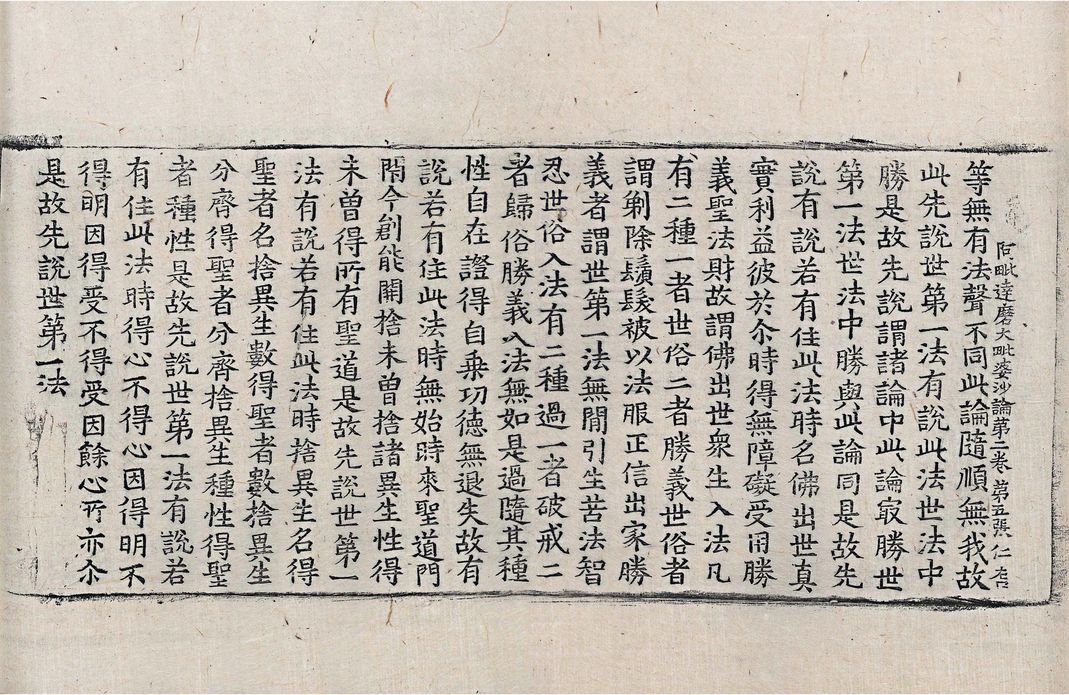 阿毗達磨大毗婆沙論第二卷 第五張 仁
等無有法聲不同此論隨順無我故
此先說世第一法有說此法世法中
勝是故先說謂諸論中此論㝡勝世
第一法世法中勝與此論同是故先
說有說若有住此法時名佛出世真
實利益彼於尒時得無障礙受用勝
義聖法財故謂佛出世衆生入法凡
有二種一者世俗二者勝義世俗者
謂剃除鬚髮被以法服正信出家勝
義者謂世第一法無閒引生苦法智
忍世俗入法有二種過一者破戒二
者歸俗勝義入法無如是過隨其種
性自在證得自乗功德無退失故有
說若有住此法時無始時來聖道門
閇今創能開捨未曽捨諸異生性得
未曽得所有聖道是故先說世第一
法有說若有住此法時捨異生名得
聖者名捨異生數得聖者數捨異生
分齊得聖者分齊捨異生種性得聖
者種性是故先說世第一法有說若
有住此法時得心不得心因得明不
得明因得受不得受因餘心所亦尒
是故先說世第一法